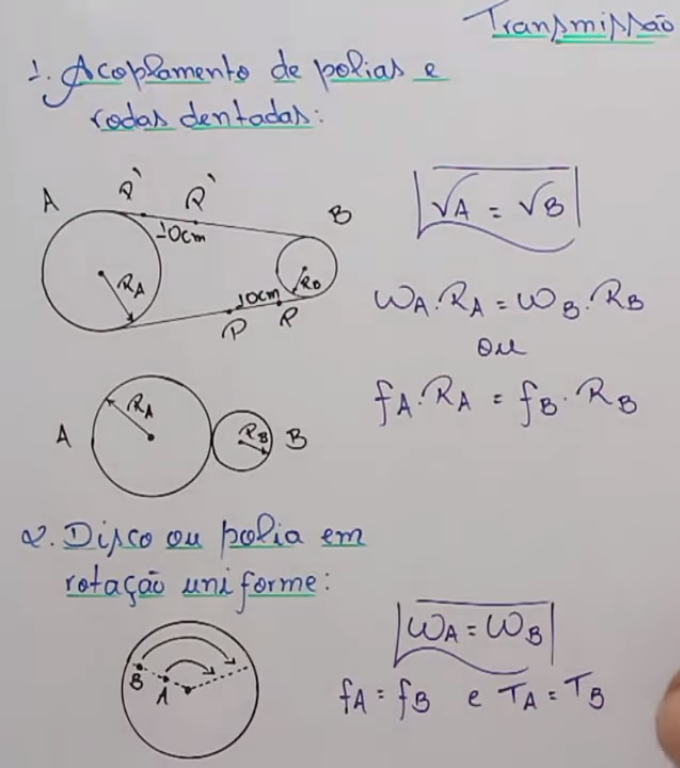 Transmissão
1. Acoplamento de polias e
rodas dentadas:
A
Q'
R'
B
10cm
RA
RB
10cm
P
R
VA = VB
ωA.RA = ωB.RB
ou
fA.RA = fB.RB
A
RA
RB
B
2. Disco ou polia em
rotação uniforme:
B
A
ωA = ωB
fA = fB e TA = TB